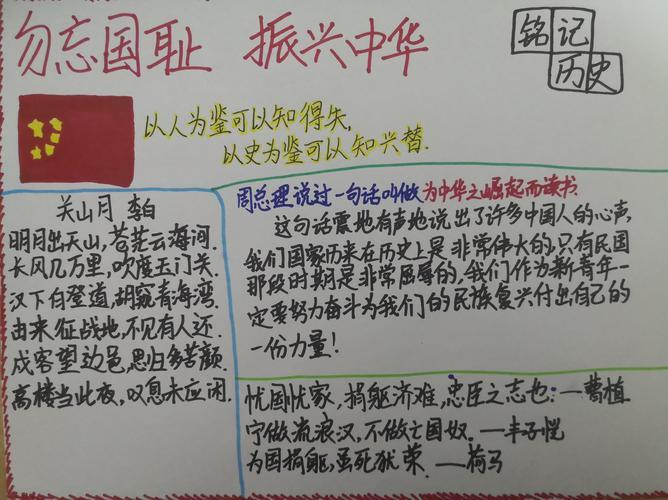 勿忘国耻 振兴中华
铭记
历史
以人为鉴可以知得失,
以史为鉴可以知兴替.
关山月 李白
明月出天山,苍茫云海间.
长风几万里,吹度玉门关.
汉下白登道,胡窥青海湾.
由来征战地,不见有人还.
戍客望边邑,思归多苦颜.
高楼当此夜,叹息未应闲.
周总理说过一句话叫做为中华之崛起而读书.
这句话震地有声地说出了许多中国人的心声,
我们国家历来在历史上是非常伟大的,只有民国
那段时期是非常屈辱的,我们作为新青年一
定要努力奋斗为我们的民族复兴付出自己的
一份力量!
忧国忧家,捐躯济难,忠臣之志也:—曹植.
宁做流浪汉,不做亡国奴.—丰子恺
为国捐躯,虽死犹荣.—荷马